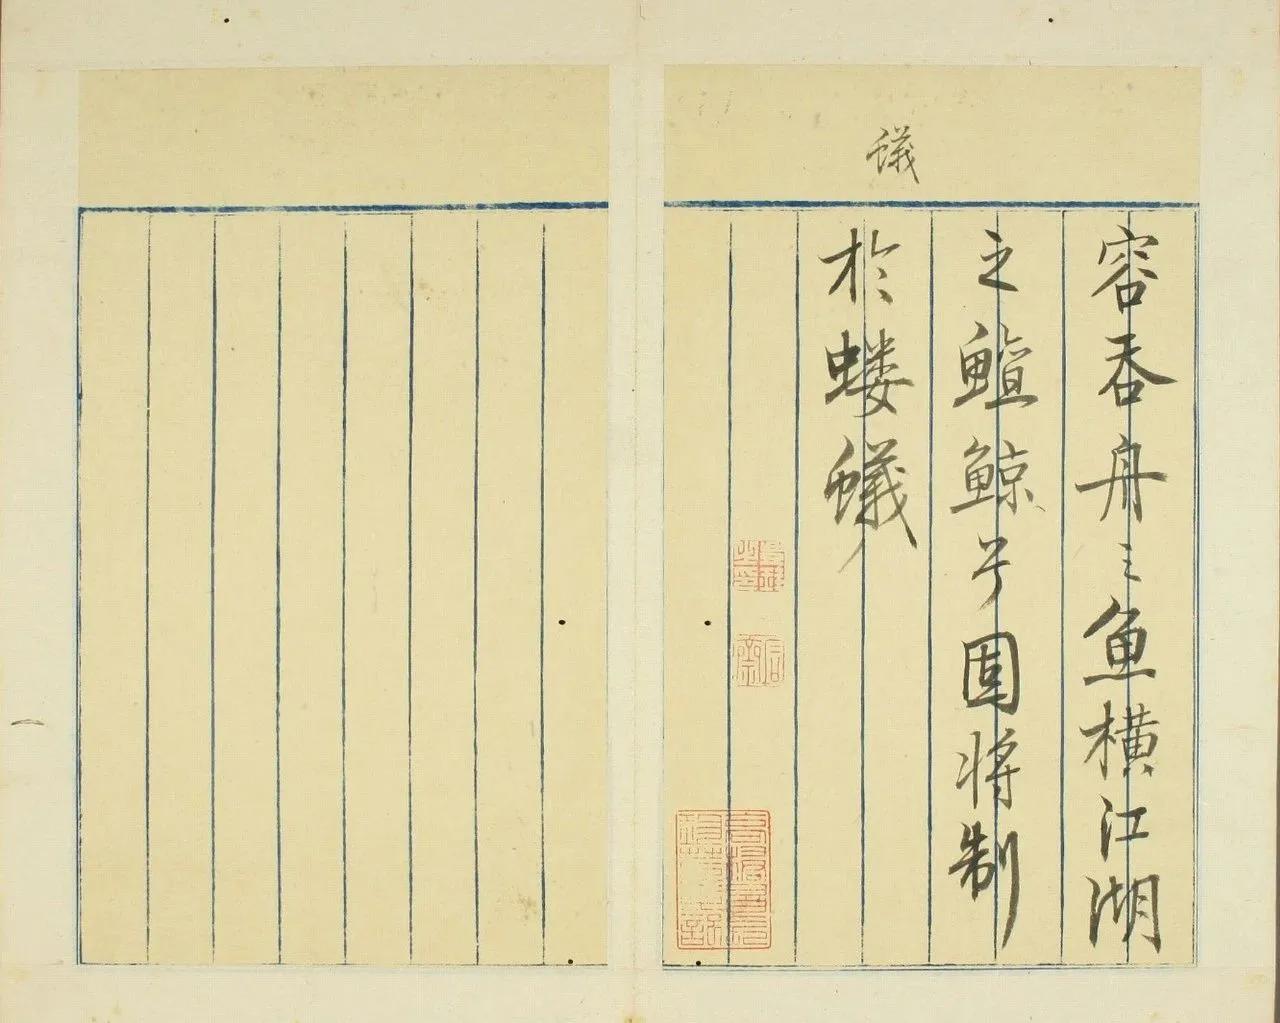 容吞舟之魚橫江湖
之鱣鯨兮固將制
於螻蟻
蟻